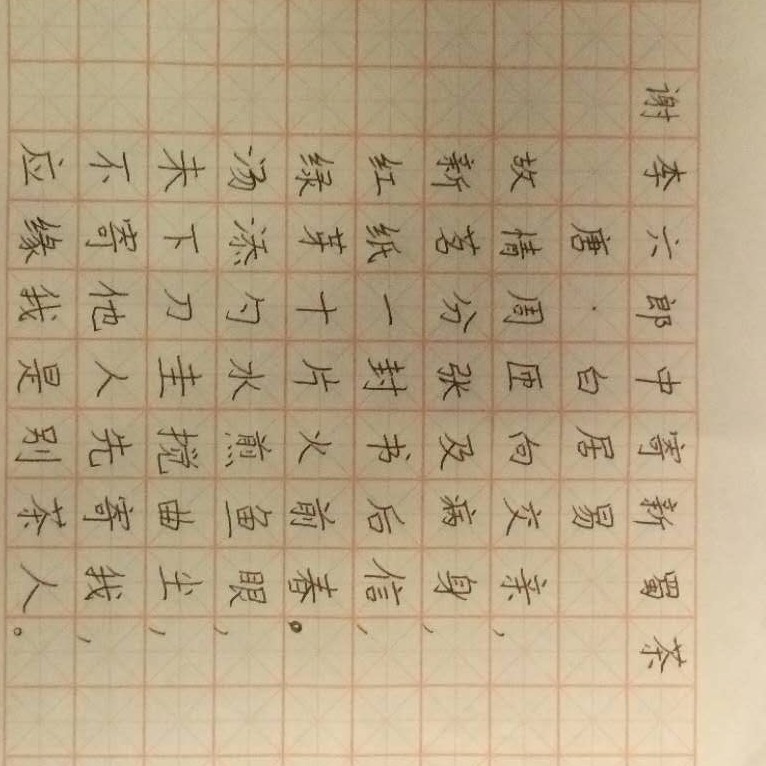 谢李六郎中寄新蜀茶
唐·白居易
故情周匝向交亲，
新茗分张及病身，
红纸一封书后信，
绿芽十片火前春。
汤添勺水煎鱼眼，
末下刀圭搅曲尘，
不寄他人先寄我，
应缘我是别茶人。